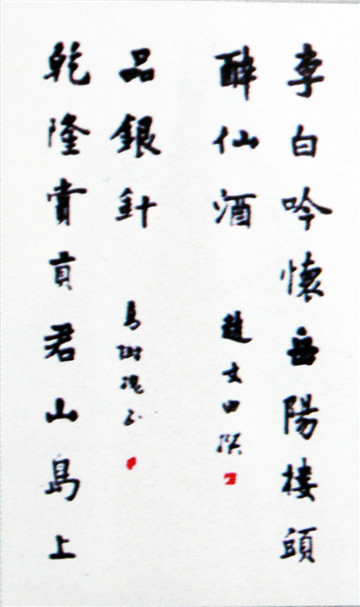 李白吟懷岳陽樓頭
醉仙酒
趙文田撰
乾隆賞貢君山島上
品銀針
馬樹